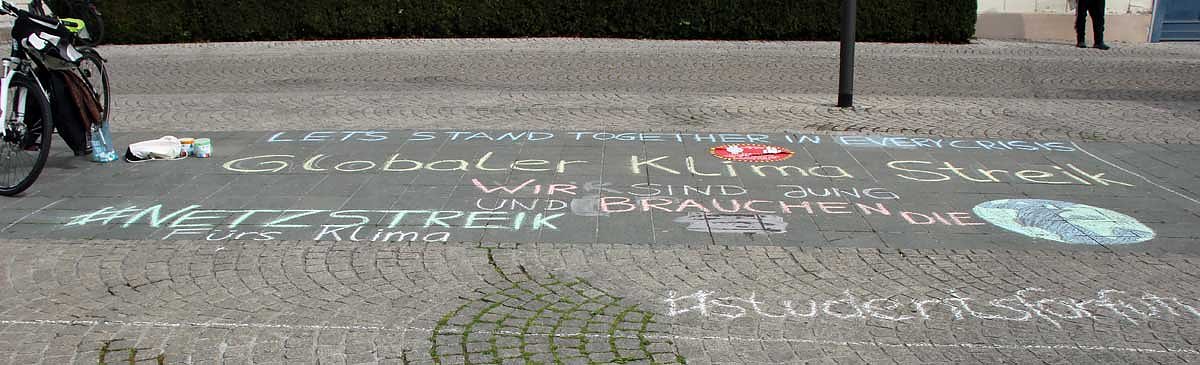 LET'S STAND TOGETHER IN EVERY CRISIS
Globaler Klima Streik
WIR SIND JUNG
UND BRAUCHEN DIE
#NETZSTREIK
Fürs Klima
#studentsforfutu